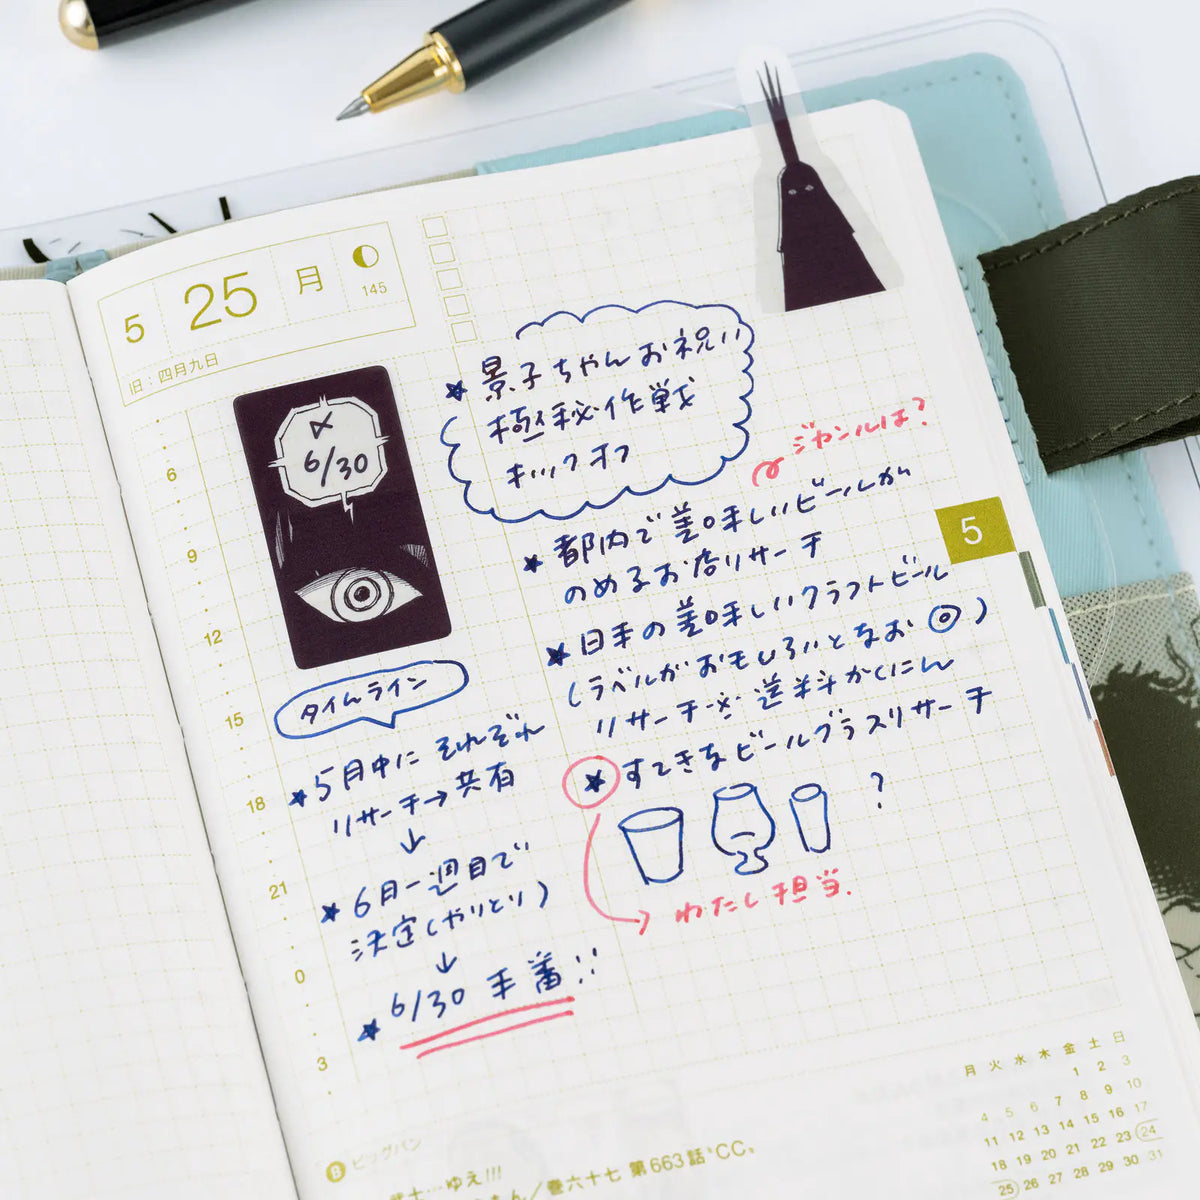 5 25 月
145
旧:四月九日
6
9
12
15
18
21
0
3
〆
6/30
タイムライン
★5月中にそれぞれ
リサーチ→共有
↓
★6月一週目で
決定(やりとり)
↓
★6/30 本番!!
★景子ちゃんお祝い
極秘作戦
キックオフ
ジャンルは?
★都内で美味しいビールが
のめるお店リサーチ
★日本の美味しいクラフトビール
(ラベルがおもしろいとなお◎)
リサーチ※送料かくにん
★すてきなビールグラスリサーチ
?
わたし担当.
5
月 火 水 木 金 土 日
1 2 3
4 5 6 7 8 9 10
11 12 13 14 15 16 17
18 19 20 21 22 23 24
25 26 27 28 29 30 31
B ビッグバン
…ゆえ!!!
/巻六十七 第663話“CC〟